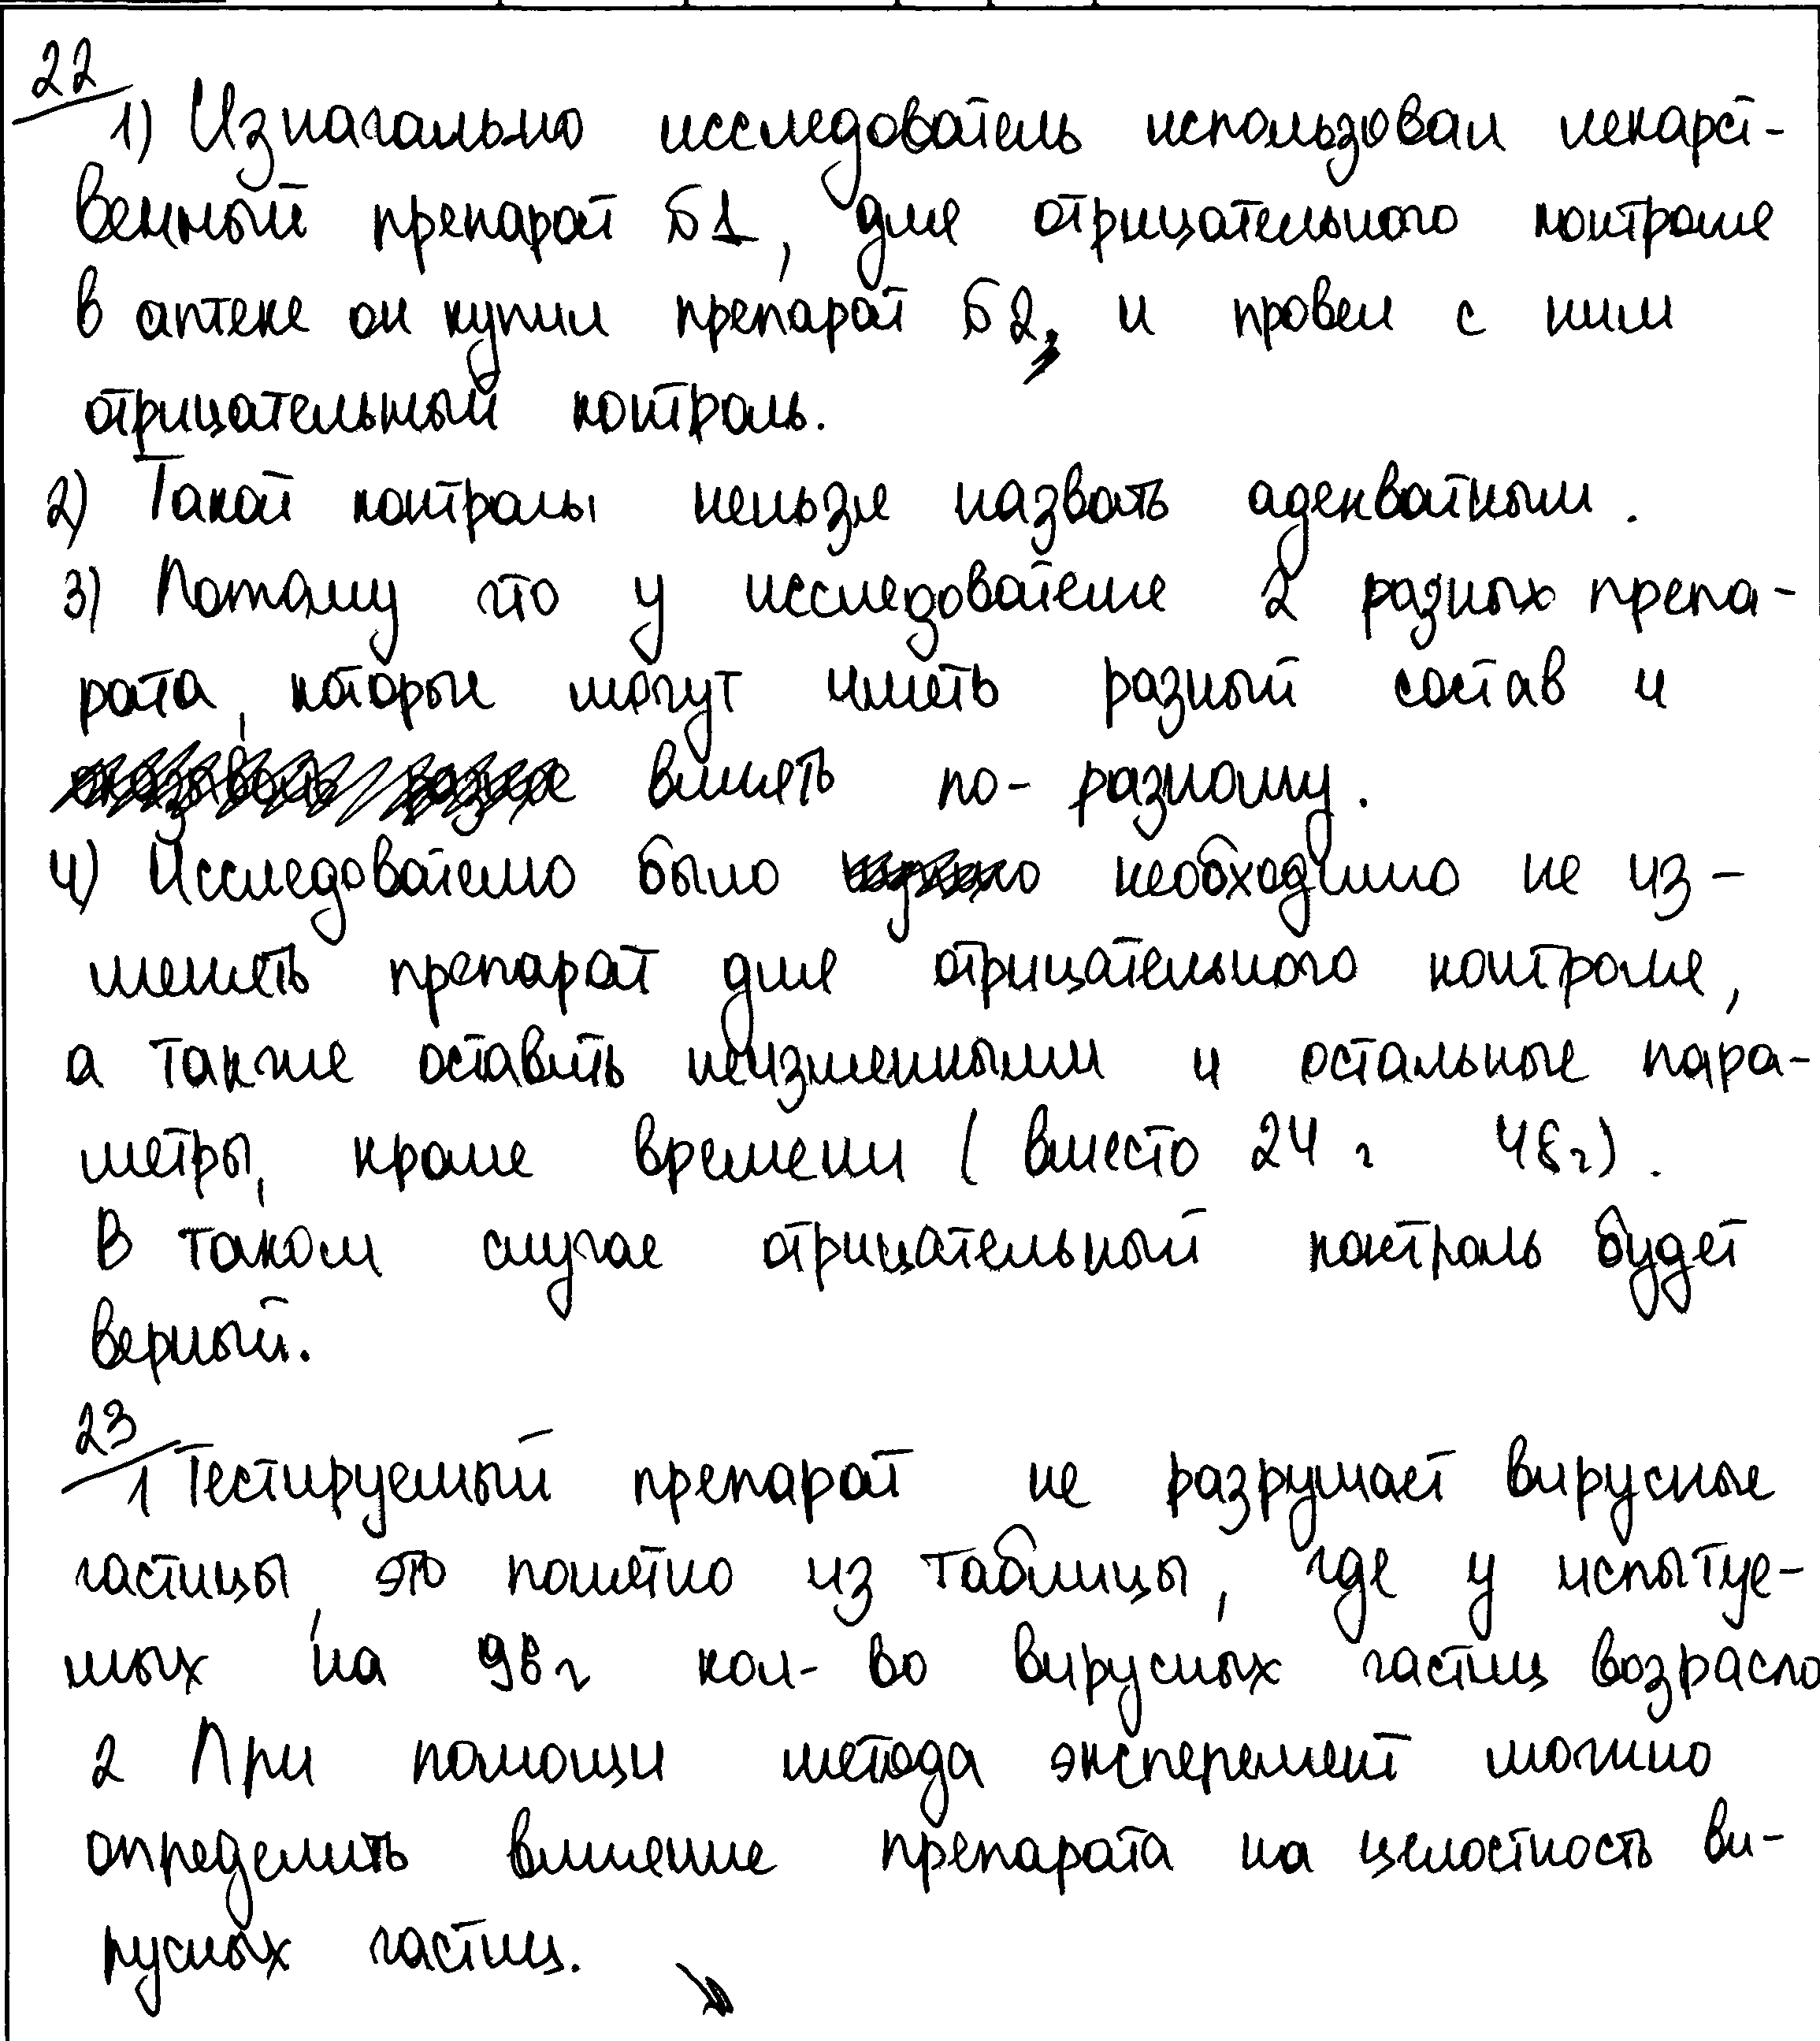 22
1) Изначально исследователь использовал лекарст-
венный препарат Б1, для отрицательного контроля
в аптеке он купил препарат Б2, и провел с ним
отрицательный контроль.
2) Такой контроль нельзя назвать адекватным.
3) Потому что у исследователя 2 разных препа-
рата, которые могут иметь разный состав и
влиять по-разному.
4) Исследователю было необходимо не из-
менять препарат для отрицательного контроля,
а также оставить неизменными и остальные пара-
метры, кроме времени (вместо 24 ч 48ч).
В таком случае отрицательный контроль будет
верный.
23
1 Тестируемый препарат не разрушает вирусные
частицы, это понятно из таблицы, где у испытуе-
мых на 98ч кол-во вирусных частиц возрасло
2 При помощи метода эксперемент можно
определить влияние препарата на целостность ви-
русных частиц.